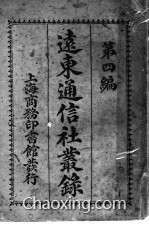 第四編
遠東通信社叢錄
上海商務印書館發行
Chaoxing.com